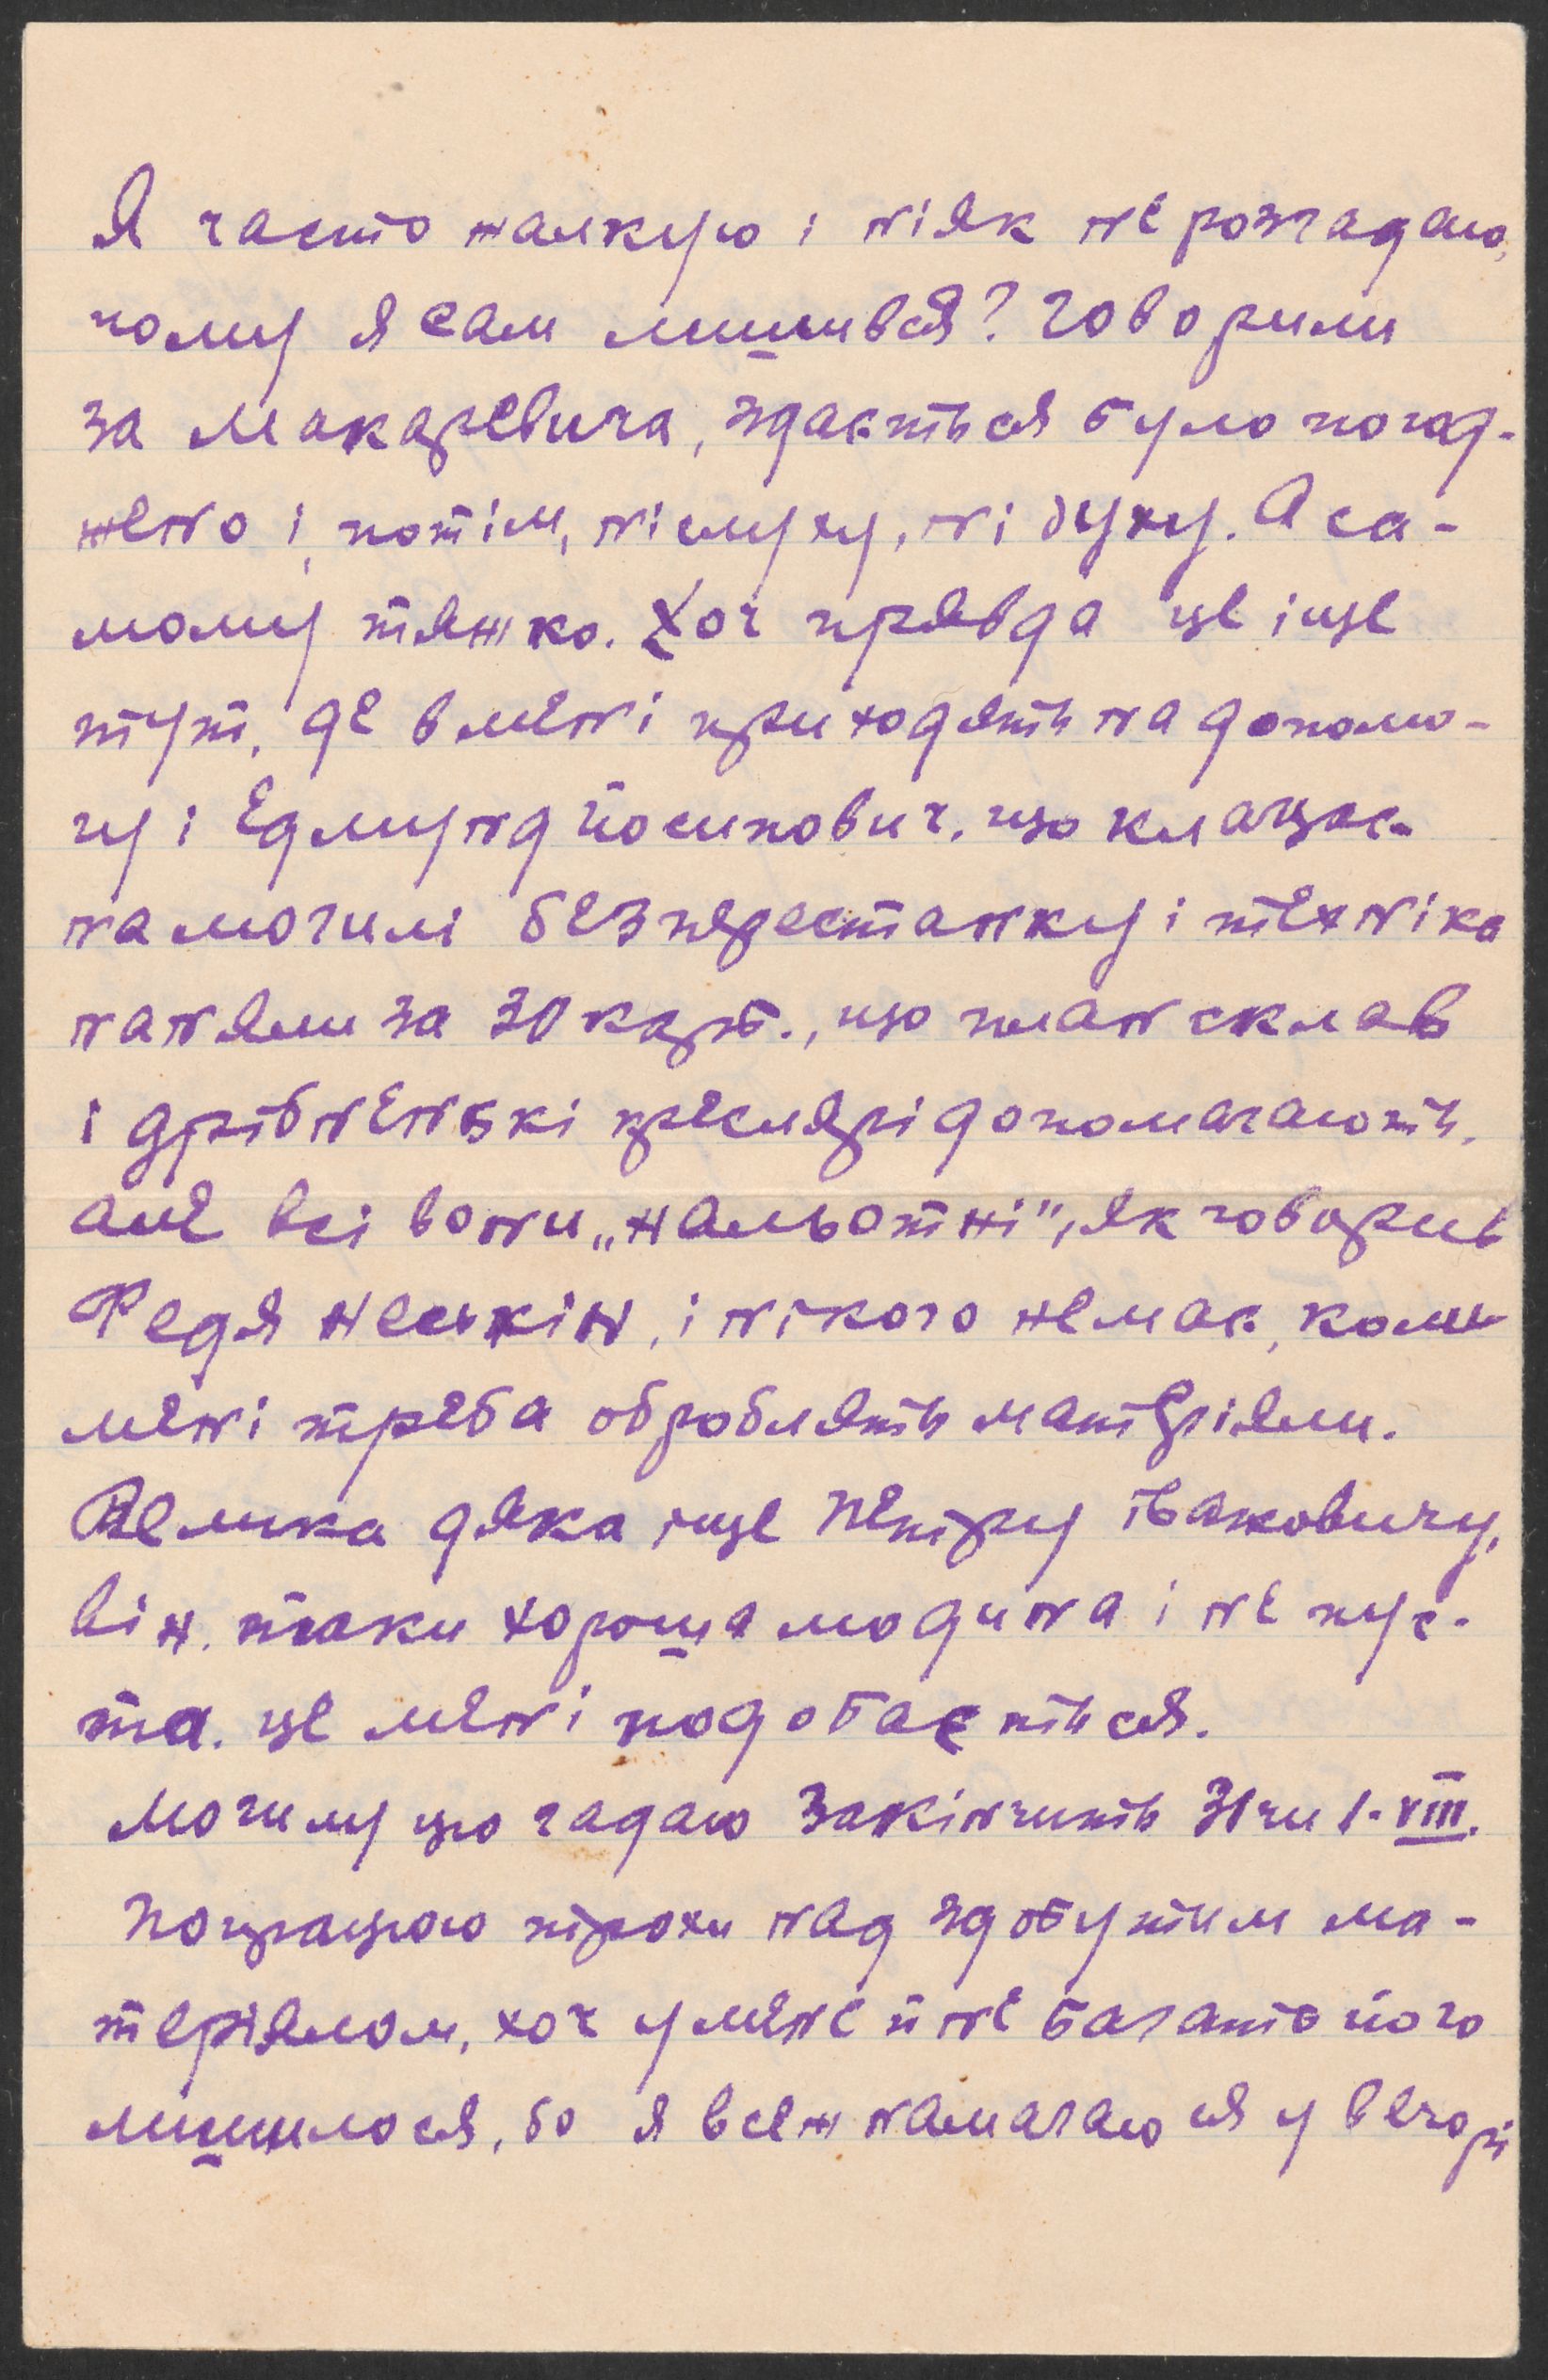 Я часто жалкую і ніяк не розгадаю,
чому я сам лишився? Говорили
за Макаревича, здається було погод-
жено і, потім, ні слуху, ні духу. А са-
мому тяжко. Хоч правда це іще
тут, де в мені приходять на допомо-
гу і Едмунд Йосипович, що клацає
на могилі безперестанку і техніка
наняли за 30 карб., що план склав
і дрібненькі креслярі допомагають,
але всі вони „нальотні", як говорив
Федя и нікого немає, коли
мені треба обробляти матеріяли.
Велика дяка іще Петру Івановичу,
він таки хороша людина і не пус-
та. Це мені подобається.
Могилу цю гадаю закінчить 31 чи 1.VIII.
Попрацюю трохи над здобутим ма-
теріялом, хоч у мене й не багато його
лишилося, бо я все ж намагаюся у вечорі